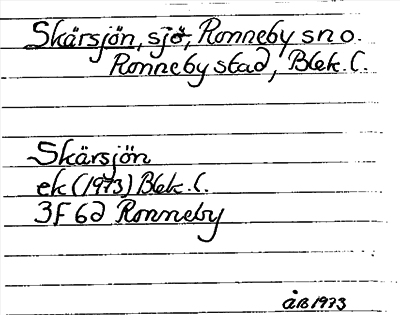 Skärsjön, sjö, Ronneby sn o.
Ronneby stad, Blek. l.
Skärsjön
ek (1973) Blek. l.
3F 6d Ronneby
ÅB 1973